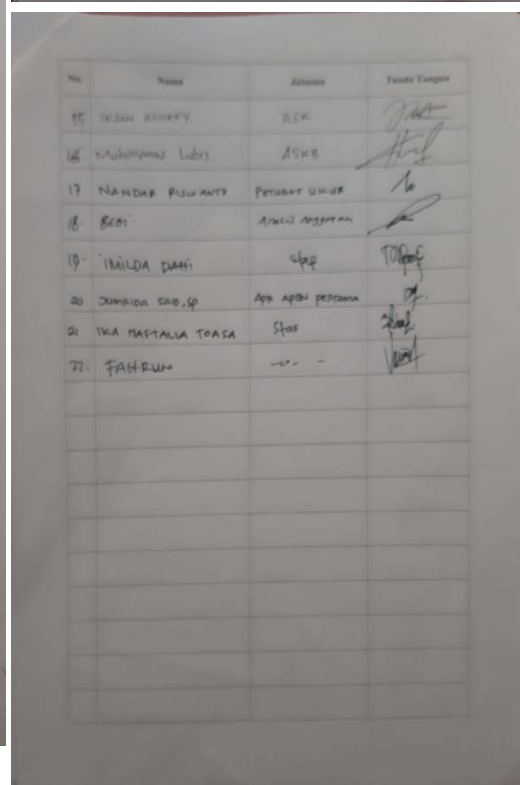 No. Nama Jabatan Tanda Tangan
15 ASK
16 Lubis ASKB
17 NANDAR RISWANTO PETUGAS UKUR
18. BEBI Analis Anggaran
19. IMILDA Staf
20 JUMRIDA SAID, SP APK APBN PERTAMA
21 IKA NAFTALIA TOASA Staf
22. FAHRUN